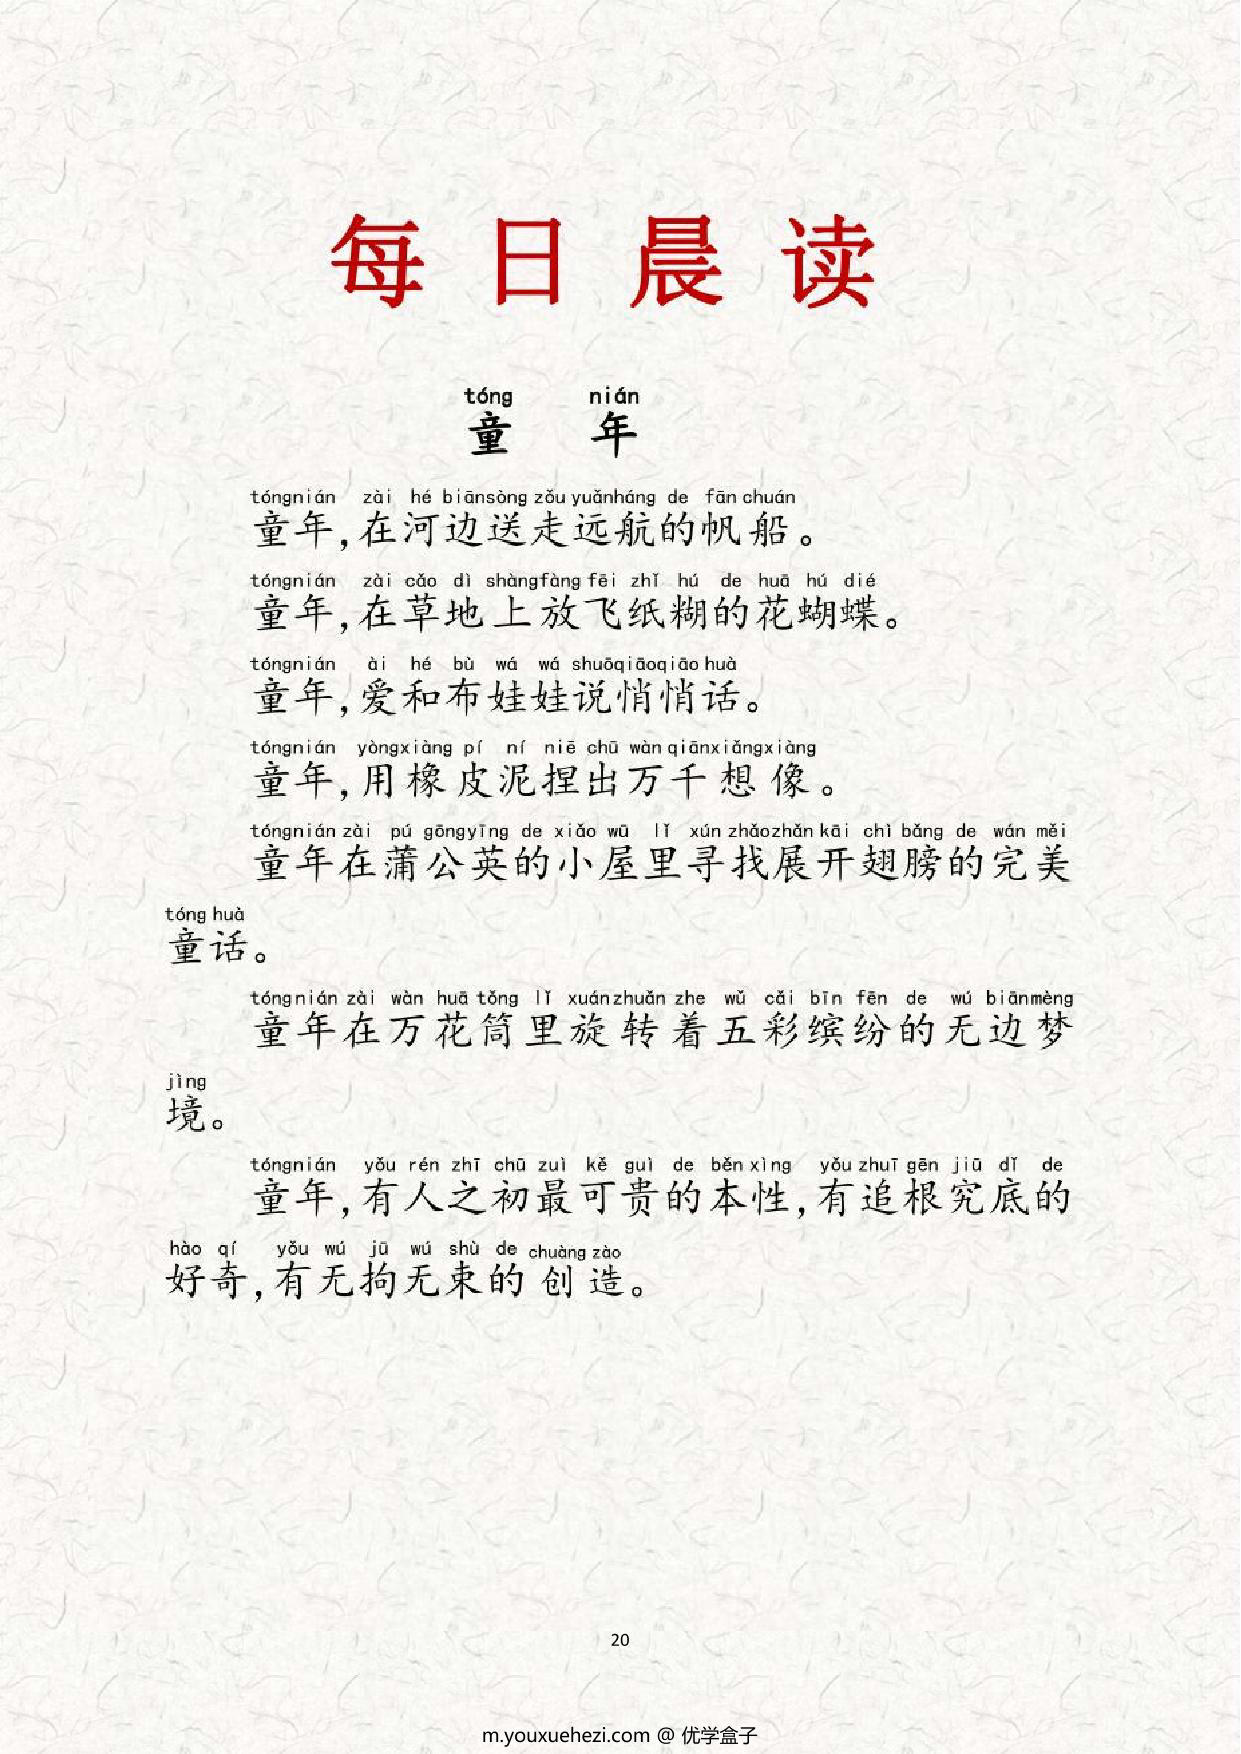 每日晨读
tóng nián
童 年
tóngnián zài hé biānsòng zǒu yuǎnháng de fān chuán
童年,在河边送走远航的帆船。
tóngnián zài cǎo dì shàngfàng fēi zhǐ hú de huā hú dié
童年,在草地上放飞纸糊的花蝴蝶。
tóngnián ài hé bù wá wá shuōqiāoqiāo huà
童年,爱和布娃娃说悄悄话。
tóngnián yòngxiàng pí ní niē chū wàn qiānxiǎngxiàng
童年,用橡皮泥捏出万千想像。
tóngnián zài pú gōngyīng de xiǎo wū lǐ xún zhǎozhǎn kāi chì bǎng de wán měi
童年在蒲公英的小屋里寻找展开翅膀的完美
tóng huà
童话。
tóngnián zài wàn huā tǒng lǐ xuánzhuǎn zhe wǔ cǎi bīn fēn de wú biānmèng
童年在万花筒里旋转着五彩缤纷的无边梦
jìng
境。
tóngnián yǒu rén zhī chū zuì kě guì de běn xìng yǒu zhuī gēn jiū dǐ de
童年,有人之初最可贵的本性,有追根究底的
hào qí yǒu wú jū wú shù de chuàng zào
好奇,有无拘无束的创造。
20
m.youxuehezi.com @ 优学盒子